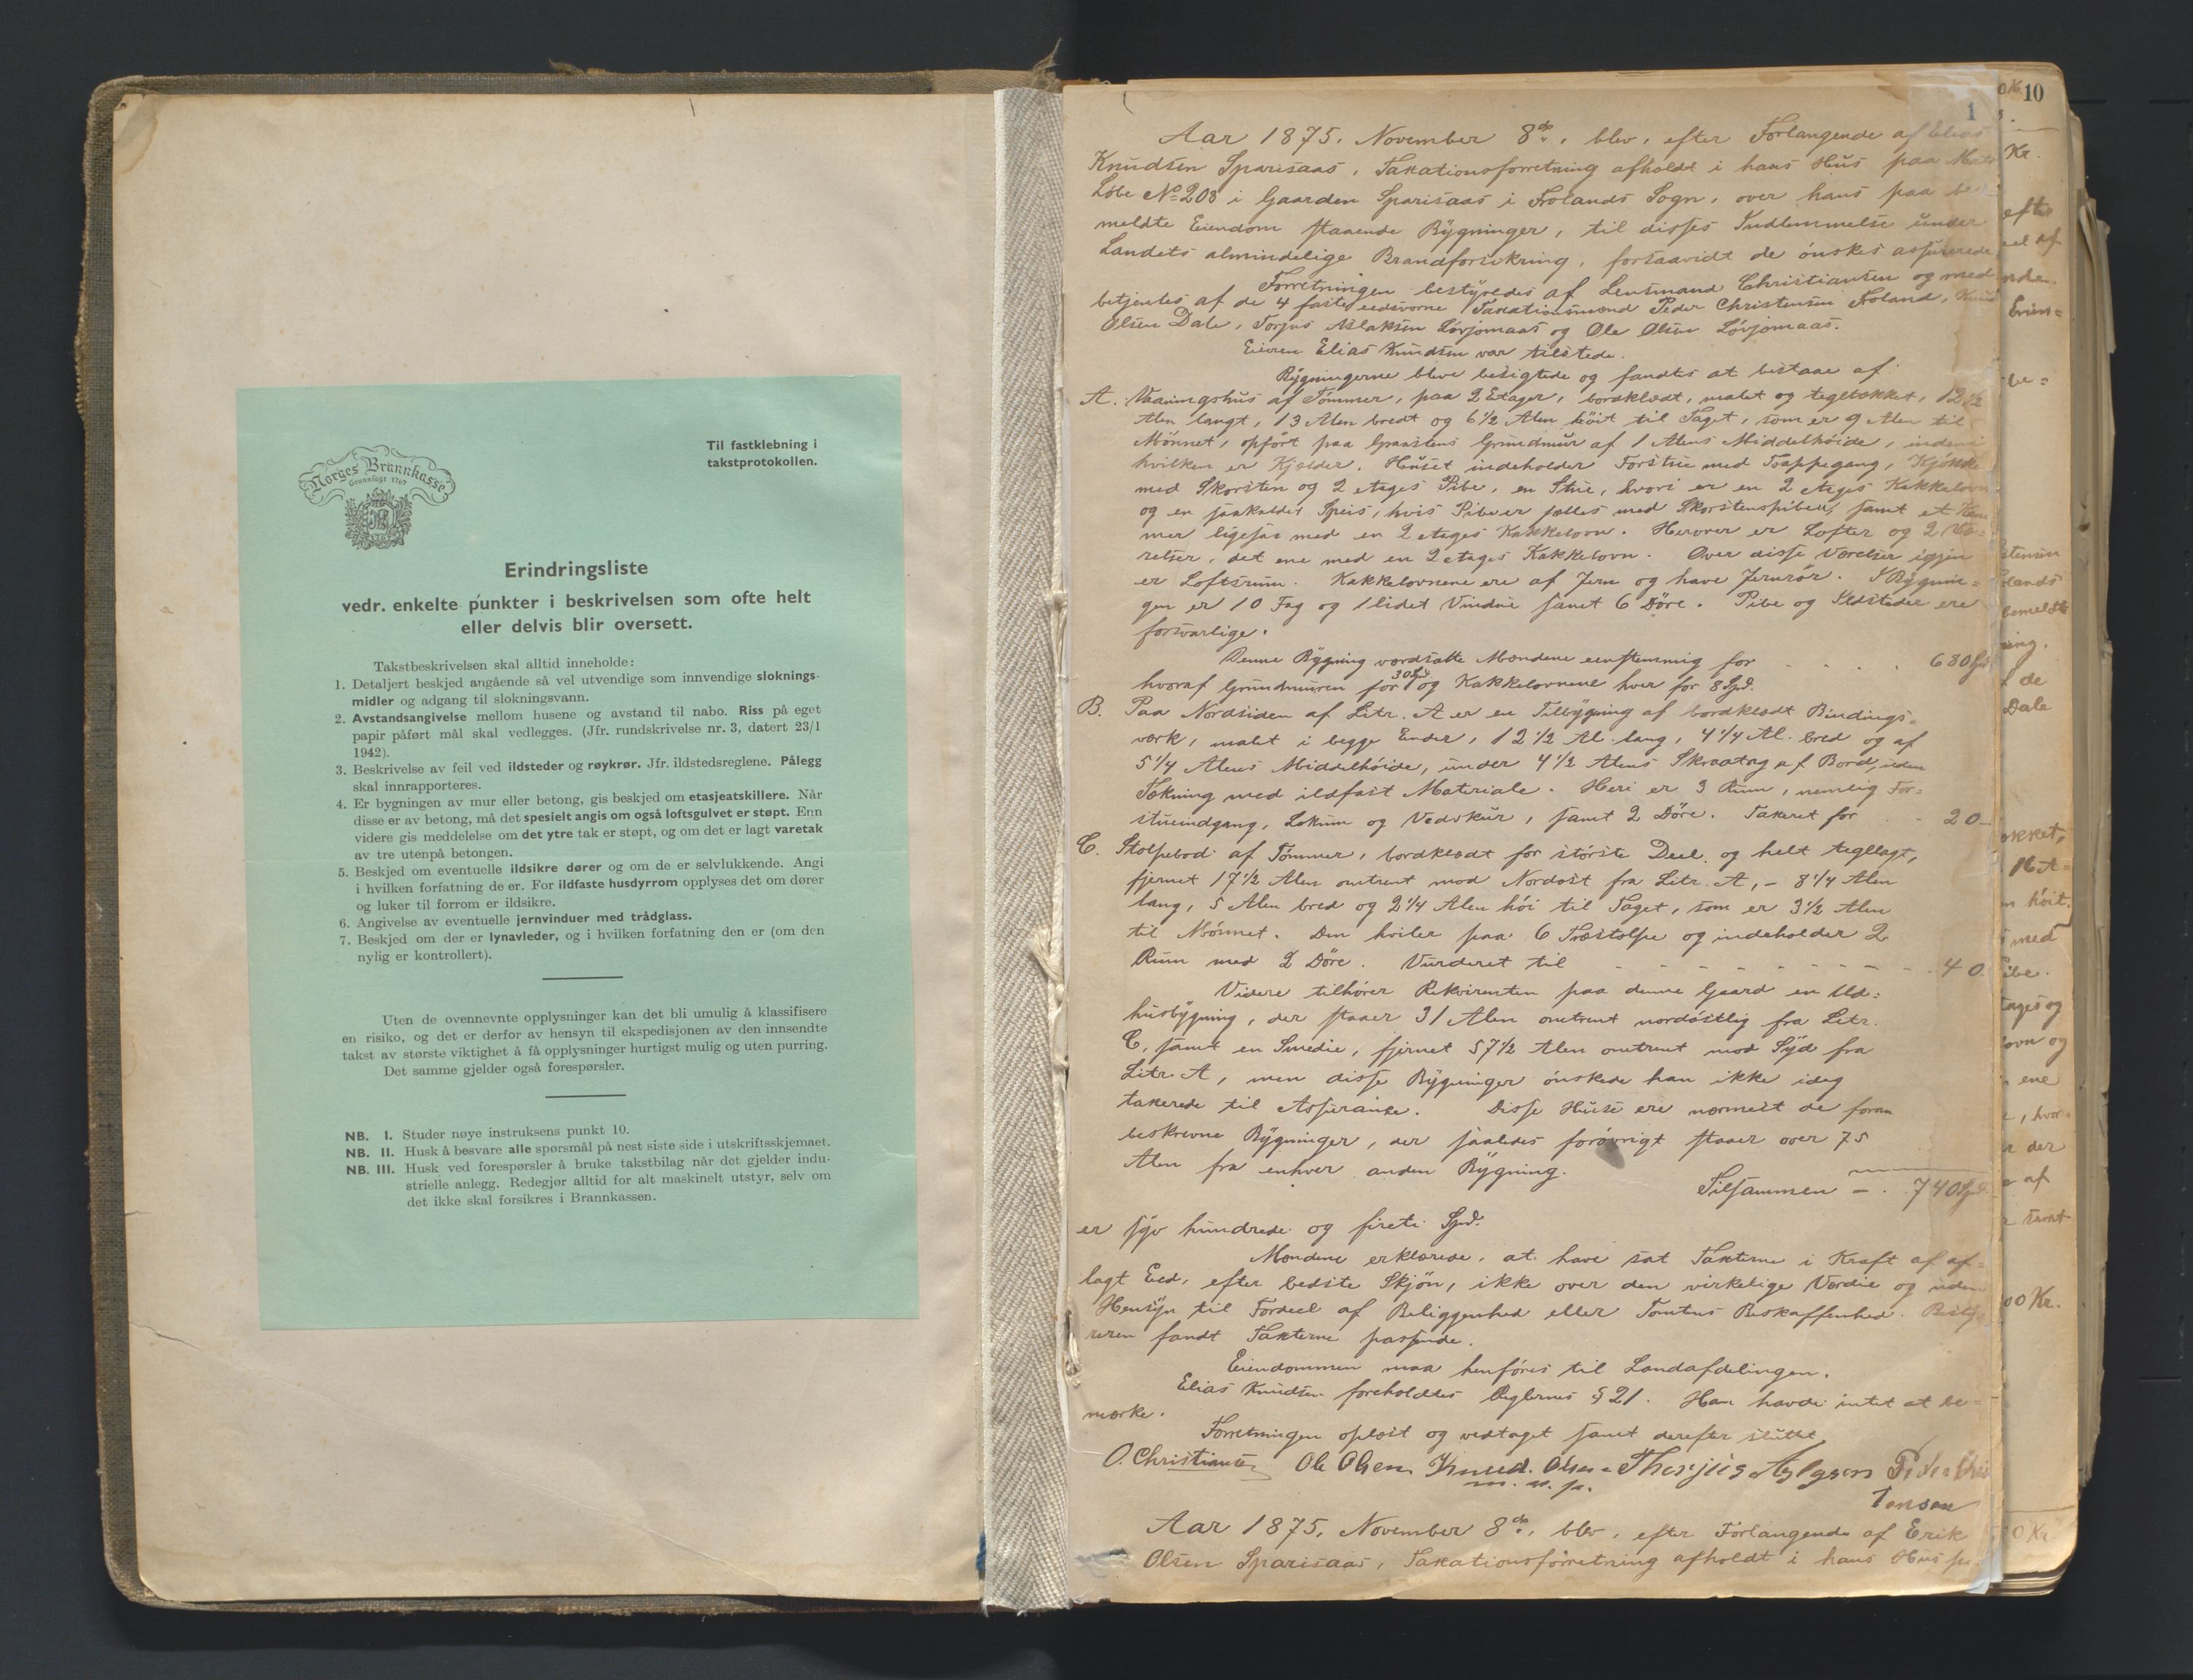 Til fastklebning i
takstprotokollen.
Norges Brannkasse
Grunnlagt 1767
Erindringsliste
vedr. enkelte punkter i beskrivelsen som ofte helt
eller delvis blir oversett.
Takstbeskrivelsen skal alltid inneholde:
1. Detaljert beskjed angående så vel utvendige som innvendige sloknings-
midler og adgang til slokningsvann.
2. Avstandsangivelse mellom husene og avstand til nabo. Riss på eget
papir påført mål skal vedlegges. (Jfr. rundskrivelse nr. 3, datert 23/1
1942).
3. Beskrivelse av feil ved ildsteder og røykrør. Jfr. ildstedsreglene. Pålegg
skal innrapporteres.
4. Er bygningen av mur eller betong, gis beskjed om etasjeatskillere. Når
disse er av betong, må det spesielt angis om også loftsgulvet er støpt. Enn
videre gis meddelelse om det ytre tak er støpt, og om det er lagt varetak
av tre utenpå betongen.
5. Beskjed om eventuelle ildsikre dører og om de er selvlukkende. Angi
i hvilken forfatning de er. For ildfaste husdyrrom opplyses det om dører
og luker til forrom er ildsikre.
6. Angivelse av eventuelle jernvinduer med trådglass.
7. Beskjed om der er lynavleder, og i hvilken forfatning den er (om den
nylig er kontrollert).
Uten de ovennevnte opplysninger kan det bli umulig å klassifisere
en risiko, og det er derfor av hensyn til ekspedisjonen av den innsendte
takst av største viktighet å få opplysninger hurtigst mulig og uten purring.
Det samme gjelder også forespørsler.
NB. I. Studer nøye instruksens punkt 10.
NB. II. Husk å besvare alle spørsmål på nest siste side i utskriftsskjemaet.
NB. III. Husk ved forespørsler å bruke takstbilag når det gjelder indu-
strielle anlegg. Redegjør alltid for alt maskinelt utstyr, selv om
det ikke skal forsikres i Brannkassen.
1
Aar 1875, November 8de, blev, efter Forlangende af Elias
Knudsen Sparisaas, Taxationsforretning afholdt i hans Hus paa Matr
Løbe No 208 i Gaarden Sparisaas i Frolands Sogn, over hans paa be-
meldte Eiendom staaende Bygninger, til disses Indlemmelse under
Landets almindelige Brandforsikring, forsaavidt de ønskes assurerede
Forretningen bestyredes af Lensmand Christiansen og med
betjentes af de 4 faste eedsvorne Taxationsmænd Peder Christensen Froland, Knud
Olsen Dale, Torjus Aslaksen Løvjomaas og Ole Olsen Løvjomaas.
Eieren Elias Knudsen var tilstede.
Bygningerne bleve besigtede og fandtes at bestaae af
A. Vaaningshus af Tømmer, paa 2 Etager, bordklædt, malet og teglækket, 12 1/2
Alen langt, 13 Alen bredt og 6 1/2 Alen høit til Taget, som er 9 Alen til
Mønnet, opført paa Graastens Grundmur af 1 Alens Middelhøide, indeni
hvilken er Kjælder. Huset indeholder Forstue med Trappegang, Kjøkken
med Skorsten og 2 etages Pibe, en Stue, hvori er en 2 etages Kakkelovn
og en saakaldet Speis, hvis Pibe er fælles med Skorstenspiben, samt et Kam
mer ligesaa med en 2 etages Kakkelovn. Herover er Lofter og 2 Væ-
relser, det ene med en 2 etages Kakkelovn. Over disse Værelser igjen
er Loftsrum. Kakkelovnene ere af Jern og have Jernrør. I Bygnin=
gen er 10 Fag og 1 lidet Vindue samt 6 Døre. Pibe og Ildsteder ere
forsvarlige.
Denne Bygning værdsatte Mændene eenstemmig for . . . . . 680 Spd
hvoraf Grundmuren for 30 Spd og Kakkelovnene hver for 8 Spd.
B. Paa Nordsiden af Litr. A er en Tilbygning af bordklædt Bindings-
værk, malet i begge Ender, 12 1/2 Al. lang, 4 1/4 Al. bred og af
5 1/4 Alens Middelhøide, under 4 1/2 Alens Skraatag af Bord, uden
Tækning med ildfast Materiale. Heri er 3 Rum, nemlig For=
stueindgang, Lokum og Vedskur, samt 2 Døre. Taxeret for - - 20 -
C. Stolpebod af Tømmer, bordklædt for største Deel og helt tegllagt,
fjernet 17 1/2 Alen omtrent mod Nordost fra Litr. A, - 8 1/4 Alen
lang, 5 Alen bred og 2 1/4 Alen høi til Taget, som er 3 1/2 Alen
til Mønnet. Den hviler paa 6 Træstolpe og indeholder 2
Rum med 2 Døre. Vurderet til - - - - - - - - 40.
Videre tilhører Rekvirenten paa denne Gaard en Ud=
husbygning, der staaer 31 Alen omtrent nordøstlig fra Litr.
C, samt en Smedie, fjernet 57 1/2 Alen omtrent mod Syd fra
Litr. A, men disse Bygninger ønskede han ikke idag
taxerede til Assurance. Disse Huse ere nærmest de foran
beskrevne Bygninger, der saaledes forøvrigt staaer over 75
Alen fra enhver anden Bygning.
Tilsammen - . 740 Spd.
er syv hundrede og firti Spd.
Mændene erklærede, at have sat Taxterne i Kraft af af=
lagt Eed, efter bedste Skjøn, ikke over den virkelige Værdie og uden
Hensyn til Fordeel af Beliggenhed eller Tomtens Beskaffenhed. Besty-
reren fandt Taxterne passende.
Eiendommen maa henføres til Landafdelingen.
Elias Knudsen foreholdtes Reglernes § 21. Han havde intet at be=
mærke.
Forretningen oplæst og vedtaget samt derefter sluttet
O. Christiansen Ole Olsen Knud. Olsen Thorjus Aslgsen Peder Chris
m. p. p. tensen
Aar 1875, November 8de, blev, efter Forlangende af Erik
Olsen Sparisaas, Taxationsforretning afholdt i hans Hus pa
10
Kr.
efter
eel af
nde
Erim=
be=
stensen
olands
bemeldte
ning.
f de
Dale
ækket,
16 A=
n høit.
med
ibe.
tages og
ovn og
ene
, hvor=
r der
af
samt
00 Kr.
0 Kr